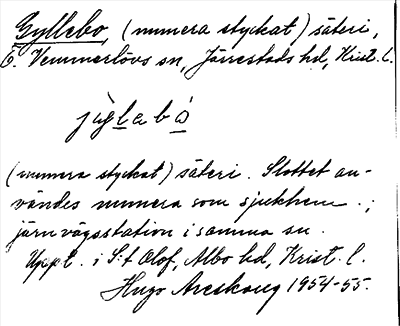 Gyllebo, (numera styckat) säteri,
Ö. Vemmerlövs sn, Järrestads hd, Krist. l.
jùg̀lebó
(numera styckat) säteri. Slottet an-
vändes numera som sjukhem.;
järnvägsstation i samma sn.
Uppt. i S:t Olof, Albo hd, Krist. l.
Hugo Areskoug 1954-55.